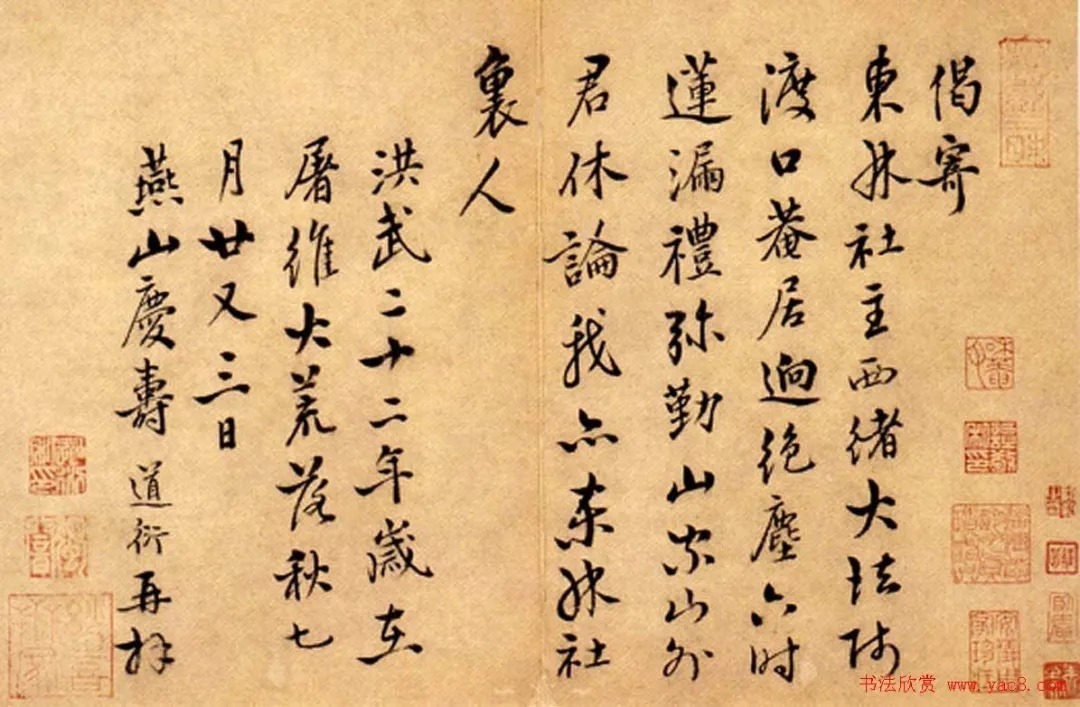 偈寄
東林社主西緒大法師
渡口菴居迥絶塵六時
蓮漏禮弥勤山家山外
君休論我亦東林社
裏人
洪武二十二年歲在
屠維大荒落秋七
月廿又三日
燕山慶壽道衍再拜
书法欣赏 www.yac8.com